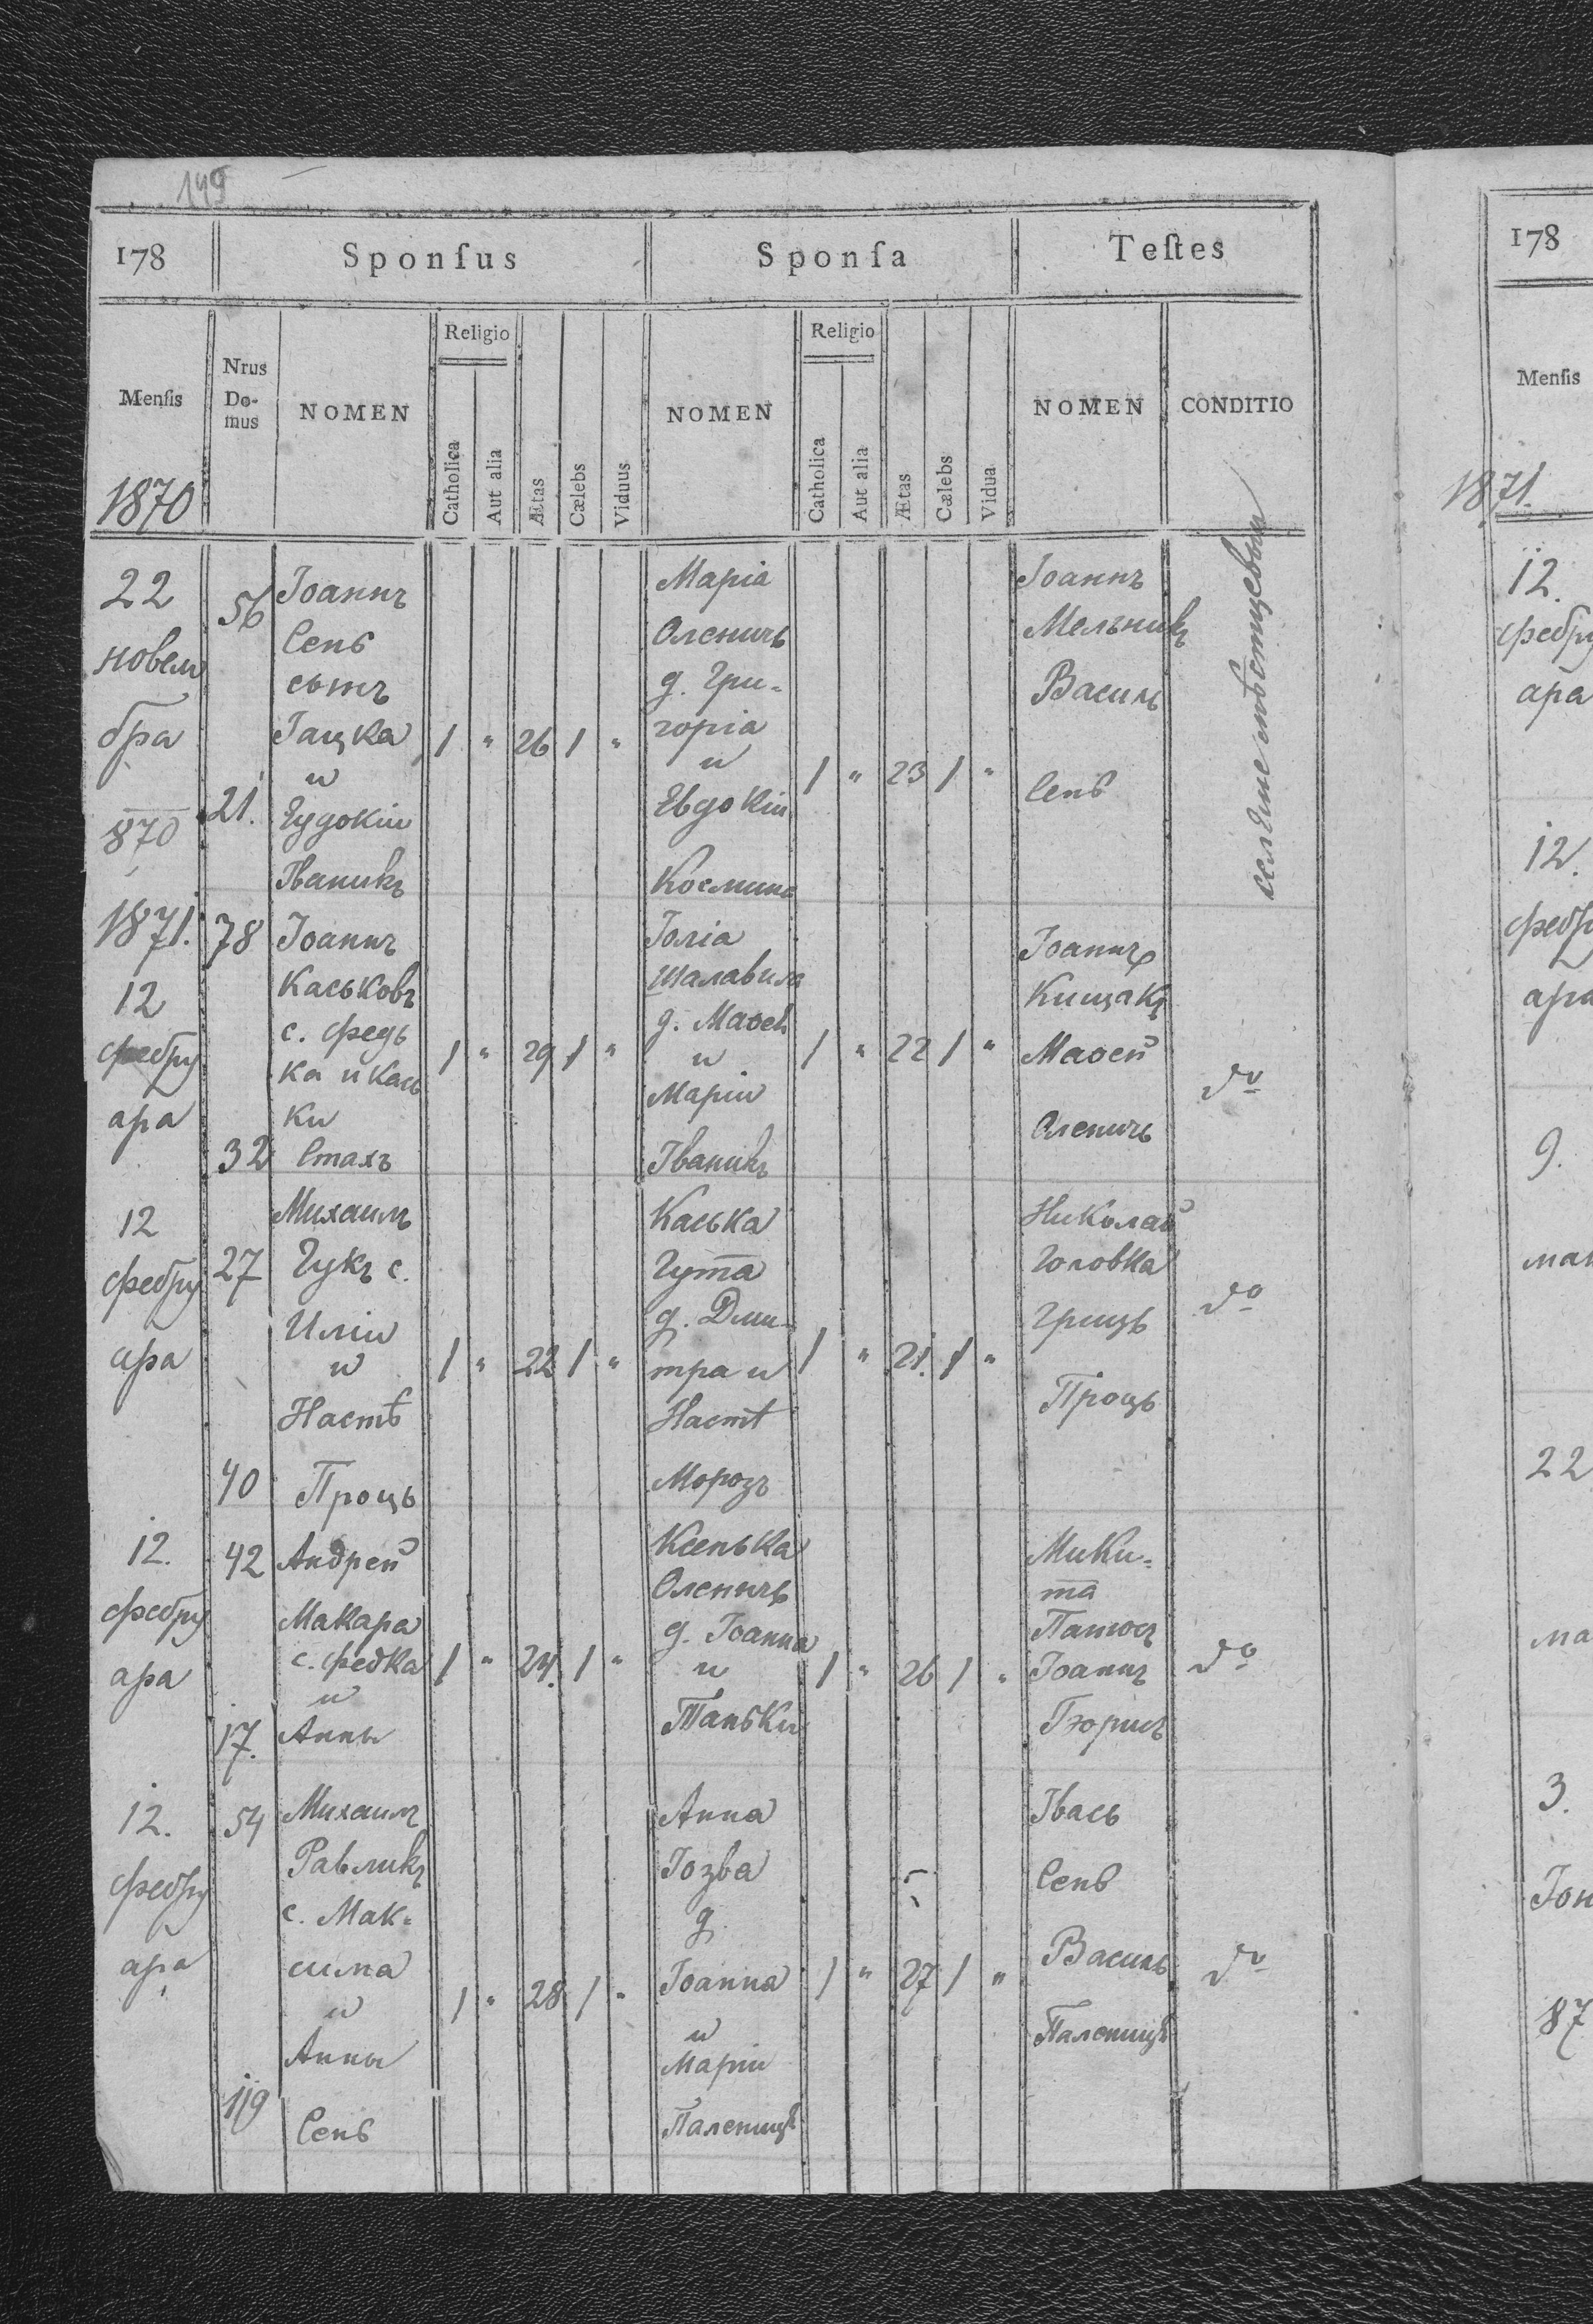 149
178
Sponſus
Sponſa
Teſtes
Menſis
Nrus Do-mus
NOMEN
Religio
Catholica
Aut alia
Ætas
Cælebs
Viduus
NOMEN
Religio
Catholica
Aut alia
Ætas
Cælebs
Vidua
NOMEN
CONDITIO
1870
22
новем
бра
870
56
21.
Іоаннъ
Сенѣ
сынъ
Гацка
и
Еудокіи
Іваникъ
1 " 26 1 "
Маріа
Оленичъ
д. Гри-
горіа
и
Евдокіи
Космина
1 " 23 1 "
Іоаннъ
Мельникъ
Василь
Сенѣ
1871.
12
фебру
ара
78
32
Іоаннъ
Каськовъ
с. Федь
ка и Кась
ки
Стахъ
1 " 29 1 "
Юліа
Шалавила
д. Маѳеѣ
и
Маріи
Іваникъ
1 " 22 1 "
Іоаннъ
Кищакъ
Маѳей
Оленичъ
dº
12
фебру
ара
27
40
Михаилъ
Гукъ с.
Иліи
и
Настѣ
Процъ
1 " 22 1 "
Каська
Гута
д. Дми-
тра и
Настѣ
Морозъ
1 " 21. 1 "
Николай
Головка
Грицъ
Процъ
dº
12.
фебру
ара
42
17.
Андрей
Макара
с. Федка
и
Анны
1 " 24. 1 "
Ксенька
Оленичъ
д. Іоанна
и
Таньки
1 " 26 1 "
Мики-
та
Іоаннъ
dº
12.
фебру
ара
54
119
Михаилъ
Равликъ
с. Мак-
сима
и
Анны
Сенѣ
1 " 28 1 "
Анна
Гозва
д.
Іоанна
и
Маріи
Паленицѣ
1 " 27 1 "
Івась
Сенѣ
Василь
Паленицѣ
dº
178
Menſis
1871.
12.
фебру
ара
12.
фебр
ара
9.
маи
22
ма
3.
Іон
87